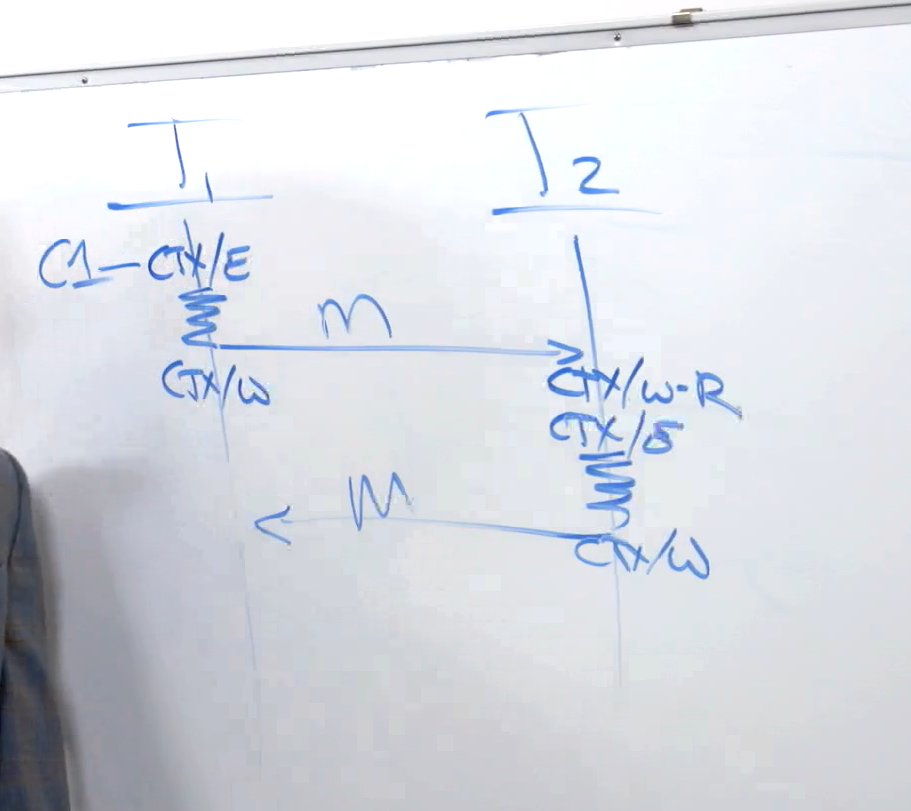 T1
T2
C1—CTX/E
m
CTX/W
CTX/W-R
CTX/E
M
CTX/W